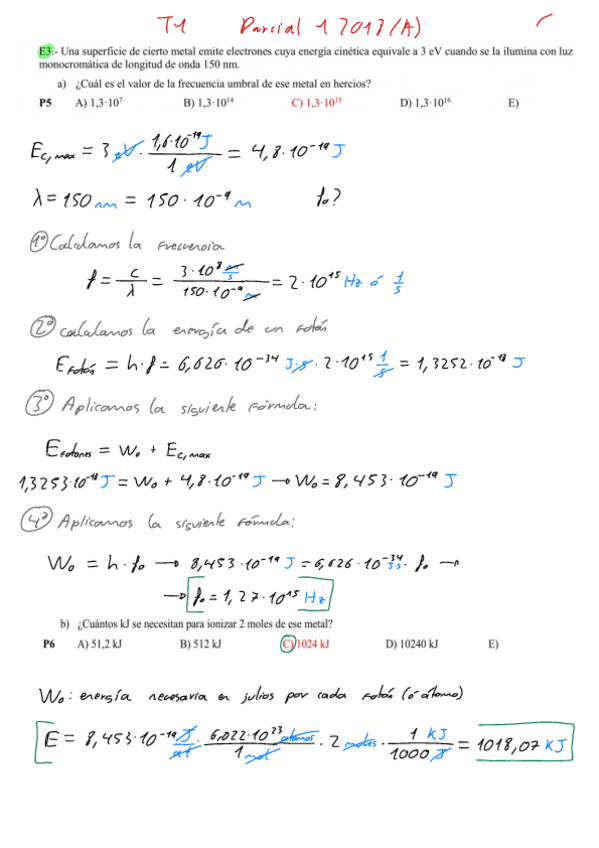 T1 Parcial 1 2017/(A)
E3.- Una superficie de cierto metal emite electrones cuya energía cinética equivale a 3 eV cuando se la ilumina con luz
monocromática de longitud de onda 150 nm.
a) ¿Cuál es el valor de la frecuencia umbral de ese metal en hercios?
P5 A) 1,3·10⁷ B) 1,3·10¹⁴ C) 1,3·10¹⁵ D) 1,3·10¹⁶ E)
Ec,max = 3 eV · 1,6·10⁻¹⁹ J / 1 eV = 4,8·10⁻¹⁹ J
λ = 150 nm = 150·10⁻⁹ m f₀?
1º Calculamos la frecuencia
f = c/λ = 3·10⁸ m/s / 150·10⁻⁹ m = 2·10¹⁵ Hz ó 1/s
2º calculamos la energía de un fotón
E Fotón = h·f = 6,626·10⁻³⁴ J·s · 2·10¹⁵ 1/s = 1,3252·10⁻¹⁸ J
3º Aplicamos la siguiente fórmula:
E Fotones = W₀ + Ec,max
1,3253·10⁻¹⁸ J = W₀ + 4,8·10⁻¹⁹ J → W₀ = 8,453·10⁻¹⁹ J
4º Aplicamos la siguiente fórmula:
W₀ = h·f₀ → 8,453·10⁻¹⁹ J = 6,626·10⁻³⁴ J·s · f₀ →
→ f₀ = 1,27·10¹⁵ Hz
b) ¿Cuántos kJ se necesitan para ionizar 2 moles de ese metal?
P6 A) 51,2 kJ B) 512 kJ C) 1024 kJ D) 10240 kJ E)
W₀: energía necesaria en julios por cada fotón (ó átomo)
E = 8,453·10⁻¹⁹ J/at · 6,022·10²³ átomos / 1 mol · 2 moles · 1 KJ / 1000 J = 1018,07 KJ